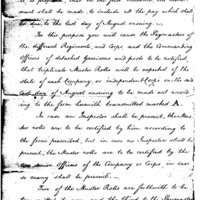 to include all the pay which shall
be due to the last day of August ensuing.
For this purpose you will cause the Paymasters of
the different Regiments, and Corps and the Commanding
Officers of detached Garrisons and posts to be notified,
that Duplicate Muster Rolls will be expected of the
state of each Company, or independent Corps on the
last day of August ensuing to be made out according
to the form herewith transmitted marked A.
In case an Inspector shall be present, the Mus-
ter rolls are to be certified by him according to
the form prescribed, but in case no Inspector shall be
present, the Muster Rolls are to be certified by the
Officers of the Company or Corps, in case
so many shall be present.
Two of the Muster Rolls are forthwith to be
and the third to the Paymaster